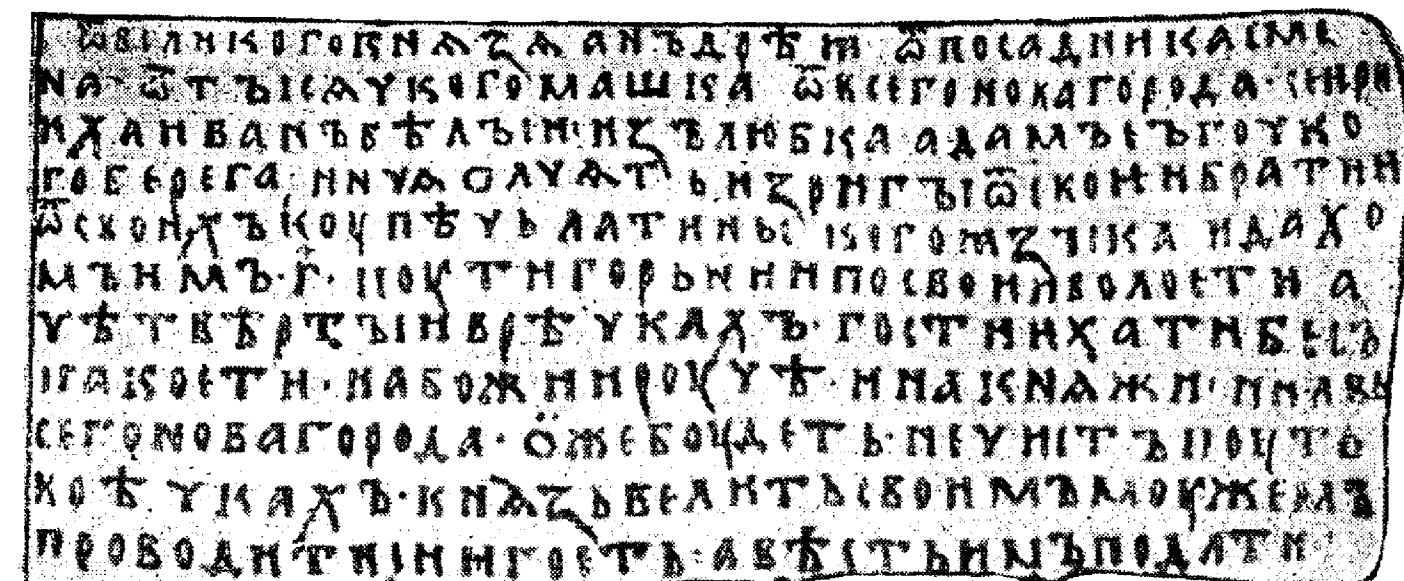 ѿвеликогокнѧꙁѧанъдрѣꙗ ѿпосадникасме
на· ѿтъісѧчкогомашка ѿвсегоновагорода·сепри
ихаиванъбѣлъіи·иꙁълюбка адамъсъгочко
гоберега·иичѧолчѧтьиꙁригъіѿсвоеибратии
ѿсвоихъкоупѣчьлатинььскогоꙗꙁъіка идахо
мъимъ·г҃· поутигорьниипосвоиволостиа
чѣтвѣртъіиврѣчкахъ· гостиихатибесъ
пакости·набожиироучѣ·инакнѧжи·инавь
сегоновагорода·ѻжебоудеть·нечистъпоуть
воѣчкахъ·кнѧꙁьвелитьсвоимъмоужемъ
проводитисиигость·авѣстьимъподати